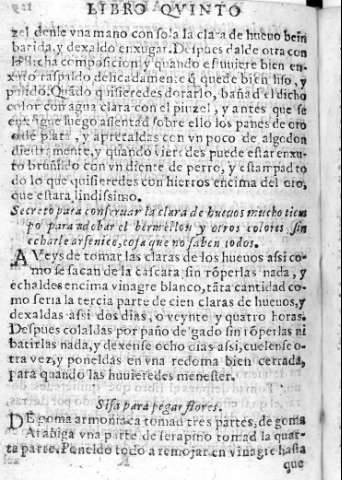 LIBRO QVINTO
zel denle vna mano con sola la clara de hueuo bein
barida, y dexaldo enxugar. Despues dalde otra con
la dicha composicion y quando estuuiere bien en-
xuto raspaldo delicadamente q̃ quede bien liso, y
polido. Quãdo quisieredes dorarlo, bañad el dicho
color con agua clara con el pinzel, y antes que se
enxugue luego assentad sobre ello los panes de oro
o de plata, y apretaldas con vn poco de algodon
diestramente, y quando vieredes puede estar enxu-
to bruñildo con vn diente de perro, y estampad to
do lo que quisieredes con hierros encima del oro,
que estara lindissimo.
Secreto para conseruar la clara de hueuos mucho tiem
po para adobar el bermellon y otros colores sin
echarle arsenico, cosa que no saben todos.
AVeys de tomar las claras de los hueuos assi co-
mo se sacan de la cascara sin rõperlas nada, y
echaldes encima vinagre blanco, tãta cantidad co-
mo seria la tercia parte de cien claras de hueuos, y
dexaldas assi dos dias, o veynte y quatro horas.
Despues colaldas por paño delgado sin rõperlas ni
batirlas nada, y dexense ocho dias assi, cuelense o-
tra vez, y poneldas en vna redoma bien cerrada,
para quando las huuieredes menester.
Sisa para pegar flores.
DE goma armoniaca tomad tres partes, de goma
Arabiga vna parte de serapino tomad la quar-
ta parte. Poneldo todo a remojar en vinagre hasta
que